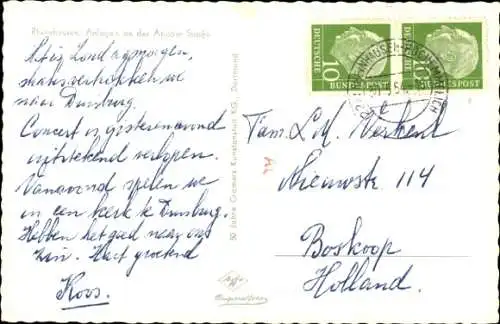 Rheinhausen: Anlagen an der Atroper Straße
Het is Zondagmorgen,
straks vertrekken we
naar Duisburg.
Concert is gisterenavond
uitstekend verlopen.
Vanavond spelen we
in een kerk te Duisburg.
Hebben het goed naar ons
zin. Hart groetend
Koos.
50 Jahre Cramers Kunstanstalt KG., Dortmund
DEUTSCHE BUNDESPOST 10
DEUTSCHE BUNDESPOST 10
Fam. L.M. Verkend
Nieuwstr 114
Boskoop
Holland.